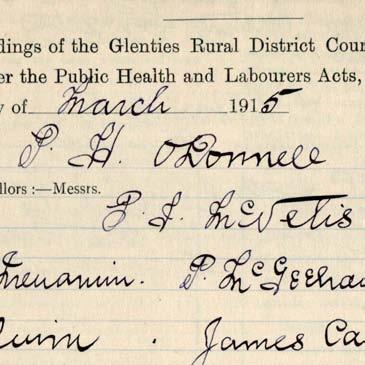 dings of the Glenties Rural District Coun
er the Public Health and Labourers Acts,
y of March 1915
P. H. O'Donnell
llors :—Messrs.
P. J. McNelis
McMenamin. P. McGeeha
Quinn . James Ca